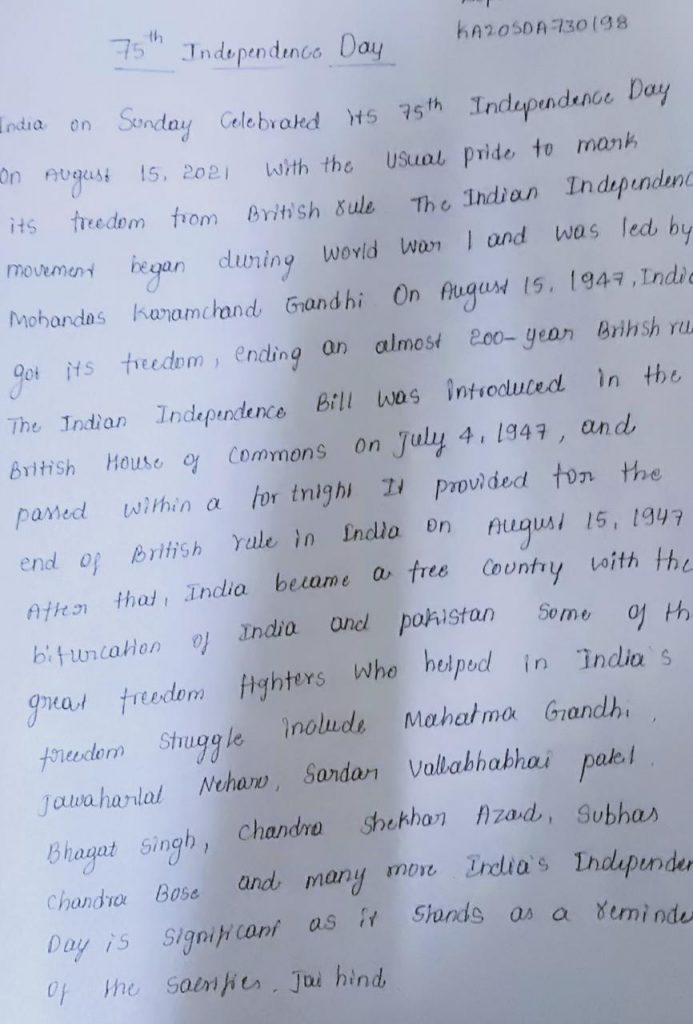 KA20SDA730198
75th Independence Day
India on Sunday Celebrated its 75th Independence Day
On August 15, 2021 With the usual pride to mark
its freedom from British rule The Indian Independenc
movement began during World War 1 and was led by
Mohandas Karamchand Gandhi On August 15, 1947, India
got its freedom, ending an almost 200-year British ru
The Indian Independence Bill was introduced in the
British House of Commons on July 4, 1947, and
passed within a fortnight It provided for the
end of British rule in India on August 15, 1947
After that, India became a free Country with the
bifurcation of India and pakistan Some of th
great freedom fighters who helped in India's
freedom Struggle include Mahatma Gandhi,
Jawaharlal Neharu, Sardar Vallabhabhai patel,
Bhagat Singh, Chandra Shekhar Azad, Subhas
Chandra Bose and many more India's Independen
Day is Significant as it Stands as a reminde
of the Sacrifies. Jai hind